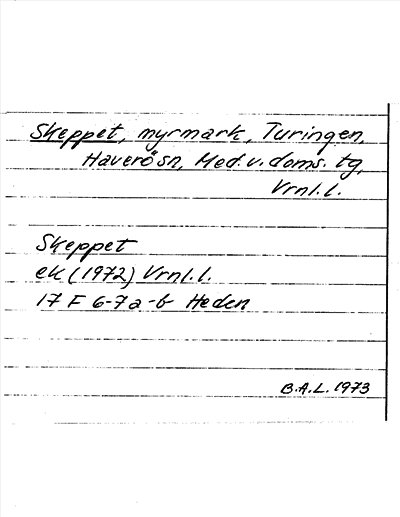 Skeppet, myrmark, Turingen,
Haverösn, Med.v.doms. tg,
Vrnl.l.
Skeppet
ek (1972) Vrnl.l.
17 F 6-7 a-b Heden
B.A.L. 1973